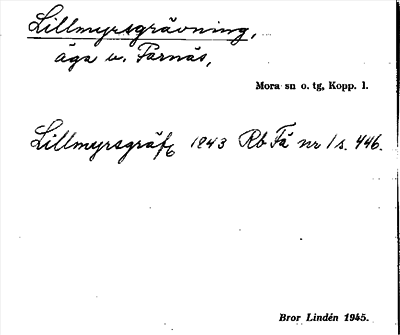 Lillmyrsgrävning,
äga u. Färnäs,
Mora sn o. tg, Kopp. l.
Lillmyrsgräfg 1843 Rb Fä nr 1 s. 446.
Bror Lindén 1945.